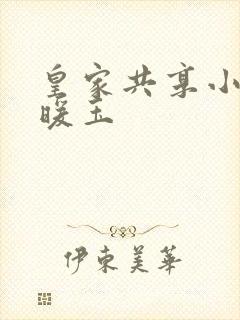 皇家共享小
暖玉
伊束美華